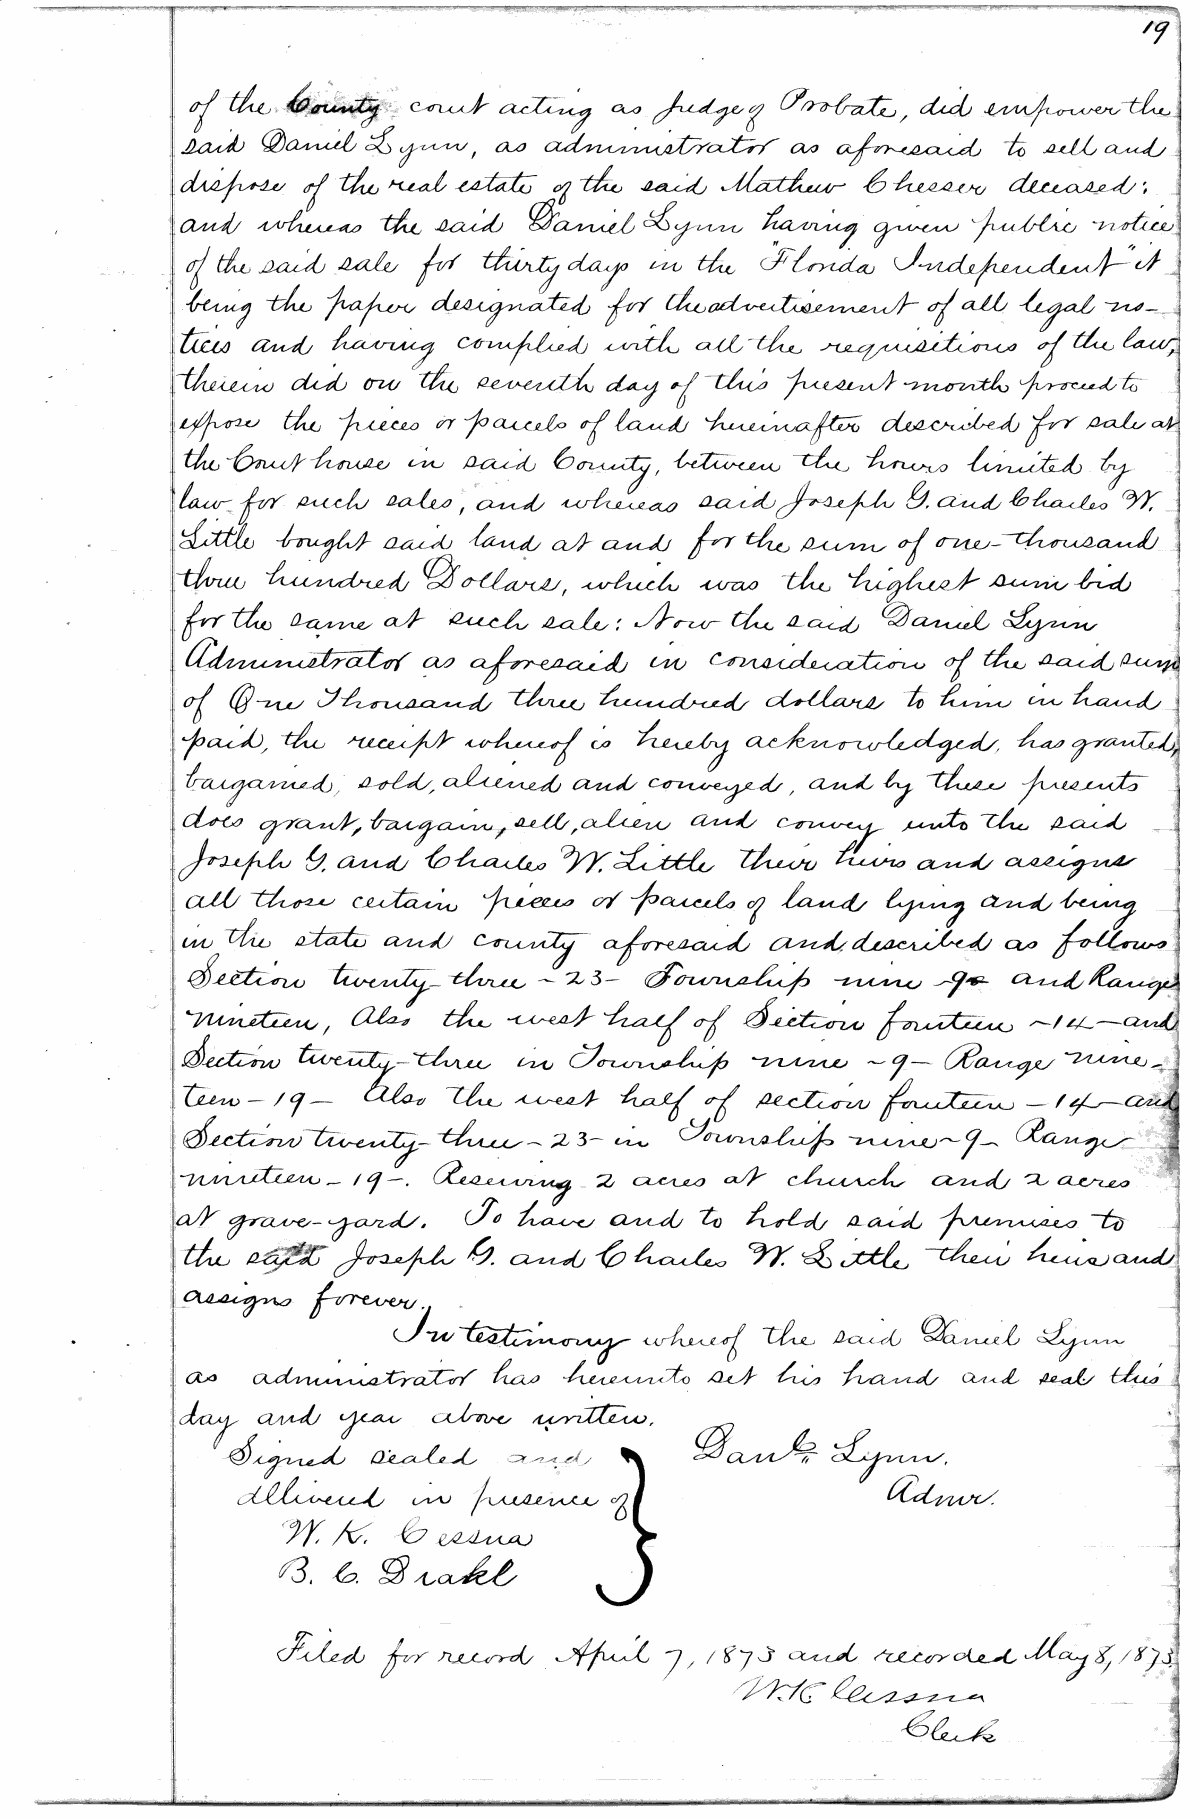 19
of the County court acting as Judge of Probate, did empower the
said Daniel Lynn, as administrator as aforesaid to sell and
dispose of the real estate of the said Mathew Chesser deceased;
and whereas the said Daniel Lynn having given public notice
of the said sale for thirty days in the "Florida Independent" it
being the paper designated for the advertisement of all legal no-
tices and having complied with all the requisitions of the law,
therein did on the seventh day of this present month proceed to
expose the pieces or parcels of land hereinafter described for sale at
the Court house in said County, between the hours limited by
law for such sales, and whereas said Joseph G. and Charles W.
Little bought said land at and for the sum of one-thousand
three hundred Dollars, which was the highest sum bid
for the same at such sale: Now the said Daniel Lynn
Administrator as aforesaid in consideration of the said sum
of One Thousand three hundred dollars to him in hand
paid, the receipt whereof is hereby acknowledged, has granted,
bargained, sold, aliened and conveyed, and by these presents
does grant, bargain, sell, alien and convey unto the said
Joseph G. and Charles W. Little their heirs and assigns
all those certain pieces or parcels of land lying and being
in the state and county aforesaid and described as follows
Section twenty-three -23- Township nine -9- and Range
nineteen, Also the west half of Section fourteen -14- and
Section twenty-three in Township nine -9- Range nine-
teen -19- Also the west half of section fourteen -14- and
Section twenty-three -23- in Township nine -9- Range
nineteen -19-. Reserving 2 acres at church and 2 acres
at grave-yard. To have and to hold said premises to
the said Joseph G. and Charles W. Little their heirs and
assigns forever.
In testimony whereof the said Daniel Lynn
as administrator has hereunto set his hand and seal this
day and year above written.
Signed sealed and } Danl. Lynn.
dellivered in presence of Admr.
W. K. Cessna
B. C. Drake
Filed for record April 7, 1873 and recorded May 8, 1873.
W. K. Cessna
Clerk